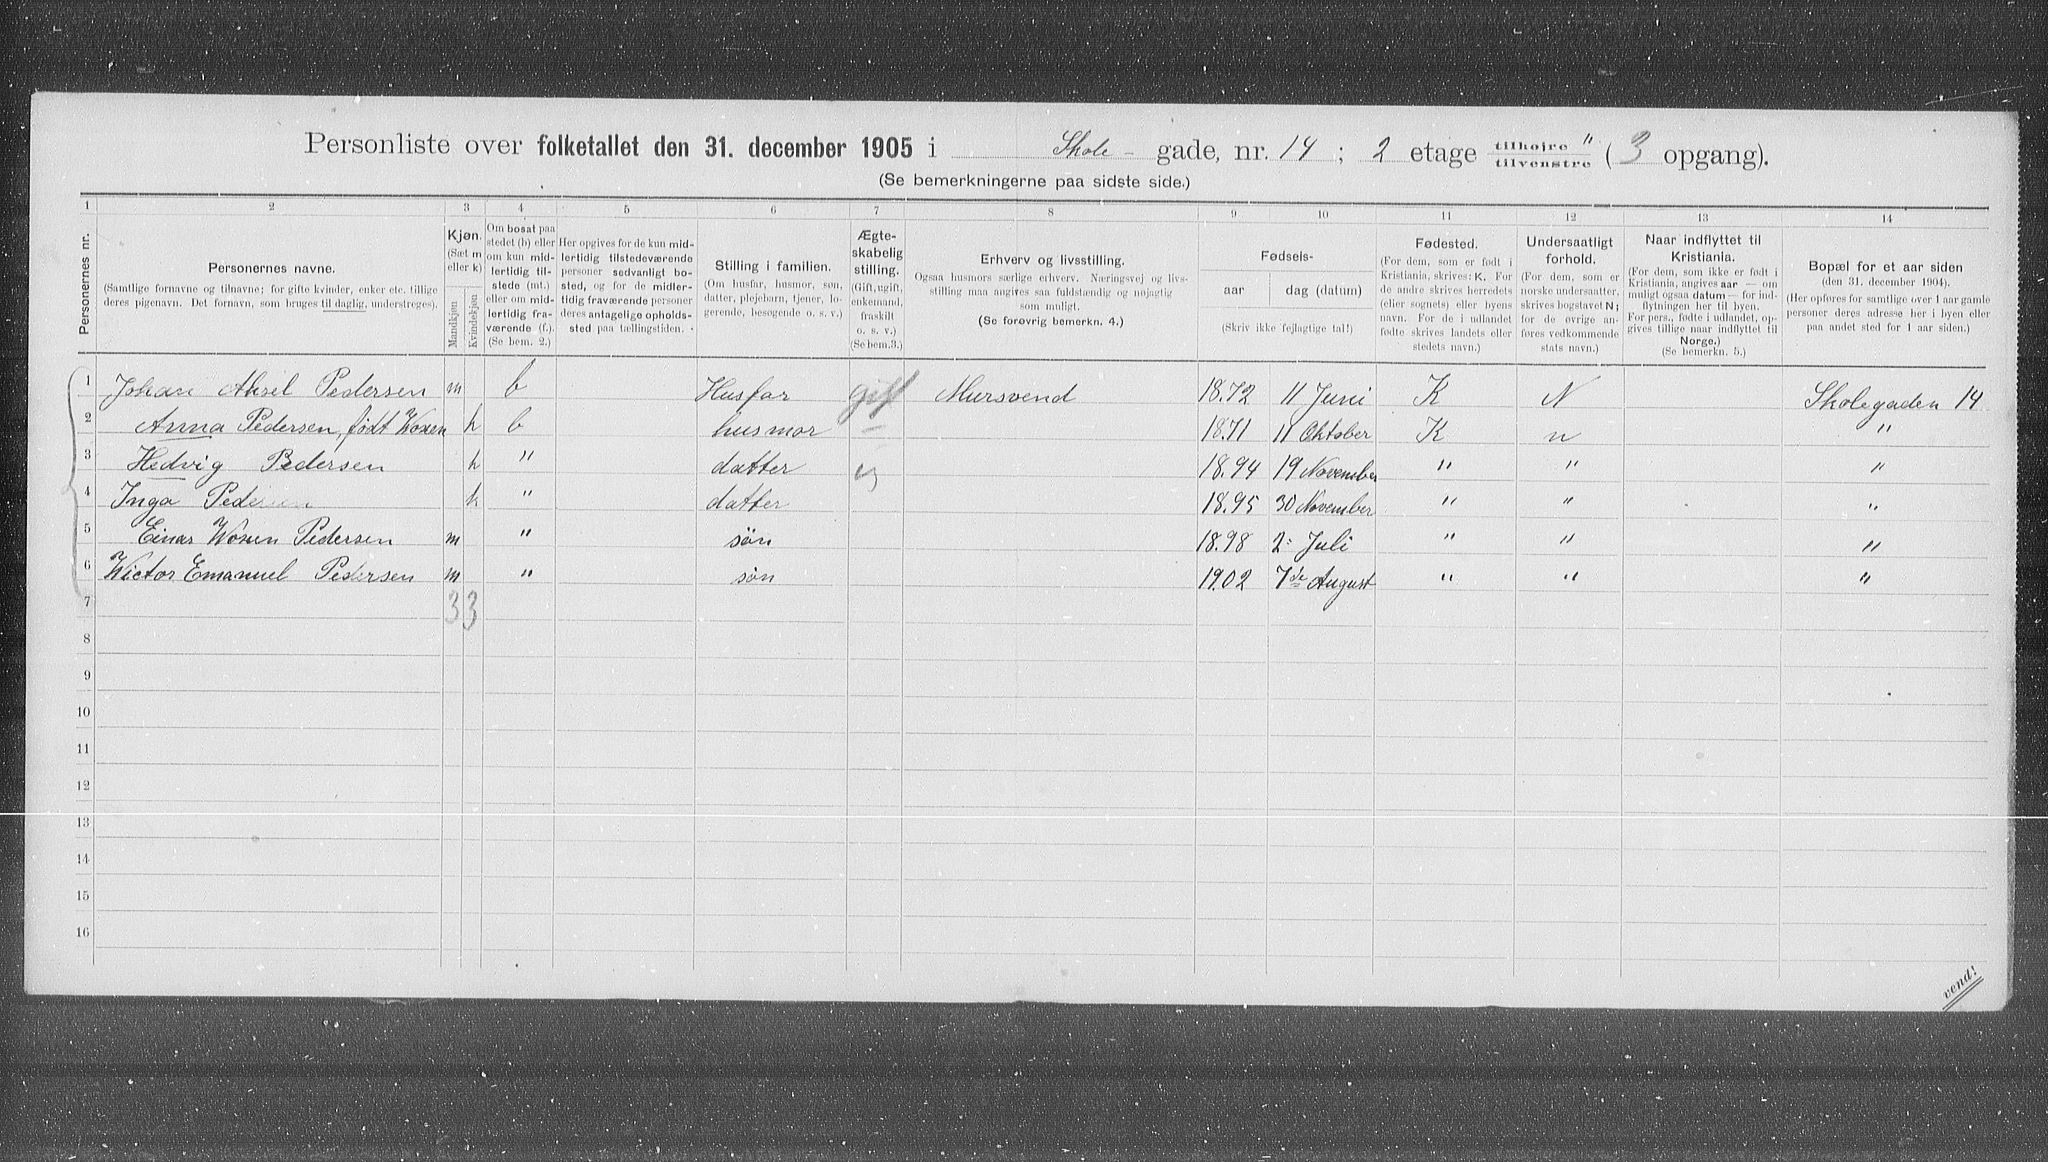 Personliste over folketallet den 31. december 1905 i Skole- gade, nr. 14; 2 etage tilhøjre " tilvenstre (3 opgang).
(Se bemerkningerne paa sidste side.)
1 2 3 4 5 6 7 8 9 10 11 12 13 14
Personernes nr.
Personernes navne.
(Samtlige fornavne og tilnavne; for gifte kvinder, enker etc. tillige
deres pigenavn. Det fornavn, som bruges til daglig, understreges).
Kjøn.
(Sæt m
eller k)
Mandkjøn
Kvindekjøn
Om bosat paa
stedet (b) eller
om kun mid-
lertidig til-
stede (mt.)
eller om mid-
lertidig fra-
værende (f.).
(Se bem. 2.)
Her opgives for de kun mid-
lertidig tilstedeværende
personer sedvanligt bo-
sted, og for de midler-
tidig fraværende personer
deres antagelige opholds-
sted paa tællingstiden.
Stilling i familien.
(Om husfar, husmor, søn,
datter, plejebarn, tjener, lo-
gerende, besøgende o. s. v.)
Ægte-
skabelig
stilling.
(Gift, ugift,
enkemand,
fraskilt
o. s. v.)
(Se bem.3.)
Erhverv og livsstilling.
Ogsaa husmors særlige erhverv. Næringsvej og livs-
stilling maa angives saa fuldstændig og nøjagtig
som muligt.
(Se forøvrig bemerkn. 4.)
Fødsels-
aar
dag (datum)
(Skriv ikke fejlagtige tal!)
Fødested.
(For dem, som er født i
Kristiania, skrives: K. For
de andre skrives herredets
(eller sognets) eller byens
navn. For de i udlandet
fødte skrives landets eller
stedets navn.)
Undersaatligt
forhold.
(For dem, som er
norske undersaatter,
skrives bogstavet N;
for de øvrige an-
føres vedkommende
stats navn.)
Naar indflyttet til
Kristiania.
(For dem, som ikke er født i
Kristiania, angives aar — om
muligt ogsaa datum — for ind-
flytningen her til byen.
For pers., fødte i udlandet, op-
gives tillige naar indflyttet til
Norge.)
(Se bemerkn. 5.)
Bopæl for et aar siden
(den 31. december 1904).
(Her opføres for samtlige over 1 aar gamle
personer deres adresse her i byen eller
paa andet sted for 1 aar siden.)
1 Johan Aksel Pedersen m b Husfar gift Mursvend 1872 11 Juni K N Skolegaden 14
2 Anna Pedersen, født Woxen k b husmor – 1871 11 Oktober K n "
3 Hedvig Pedersen k " datter ug 1894 19 November " " "
4 Inga Pedersen k " datter 1895 30 November " " "
5 Einar Woxen Pedersen m " søn 1898 2: Juli " " "
6 Wictor Emanuel Pedersen m " søn 1902 7de August " " "
7 3 3
8
9
10
11
12
13
14
15
16
vend!